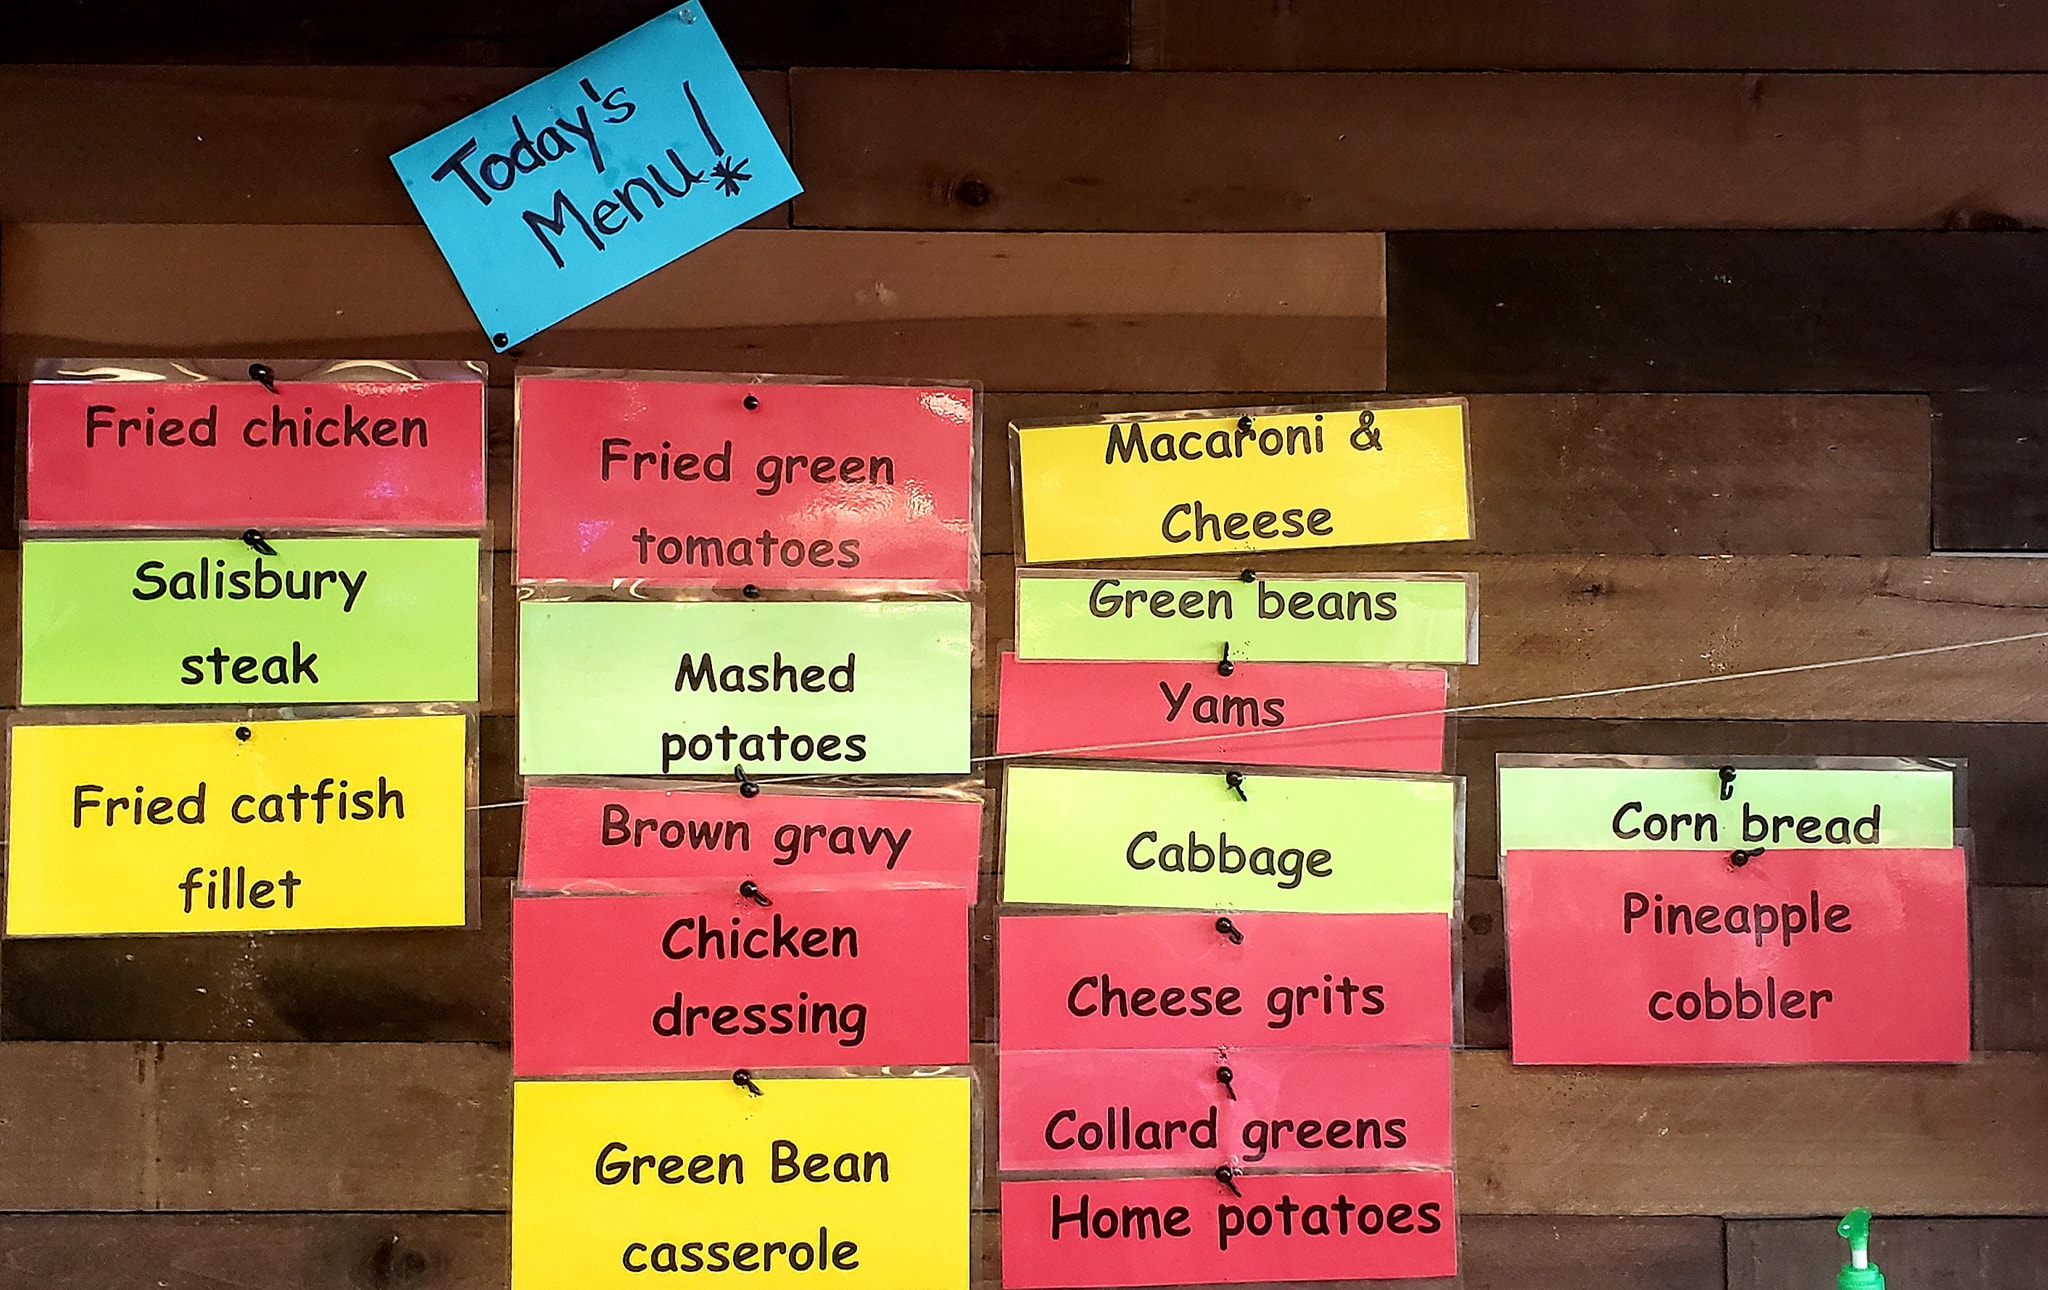 Today's
Menu!
Fried chicken
Salisbury
steak
Fried catfish
fillet
Fried green
tomatoes
Mashed
potatoes
Brown gravy
Chicken
dressing
Green Bean
casserole
Macaroni &
Cheese
Green beans
Yams
Cabbage
Cheese grits
Collard greens
Home potatoes
Corn bread
Pineapple
cobbler